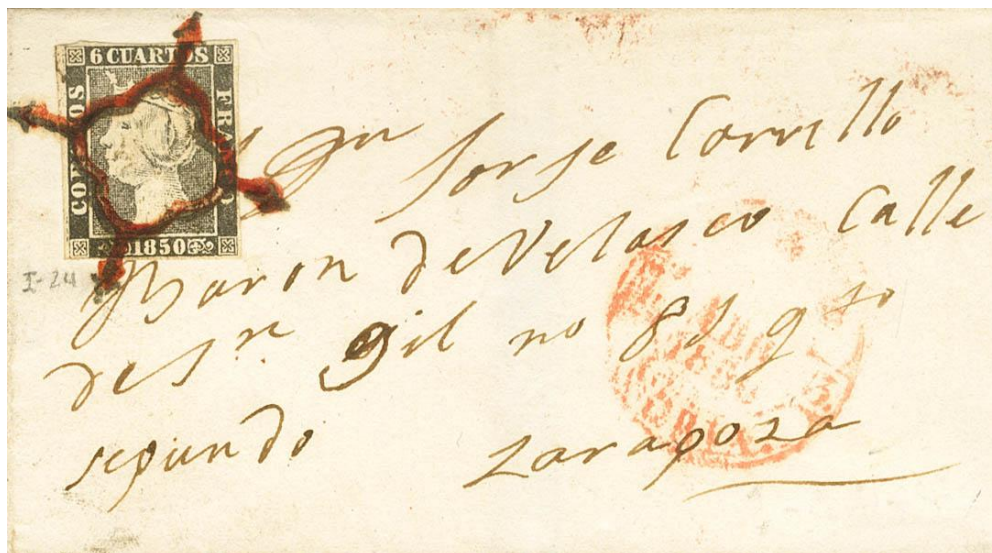 6 CUARTOS
CORREOS
FRANCO
1850
I-24
Sn Jorje Carrillo
Baron de Velasco Calle
de Sn Gil no 81 qto
segundo
Zaragoza